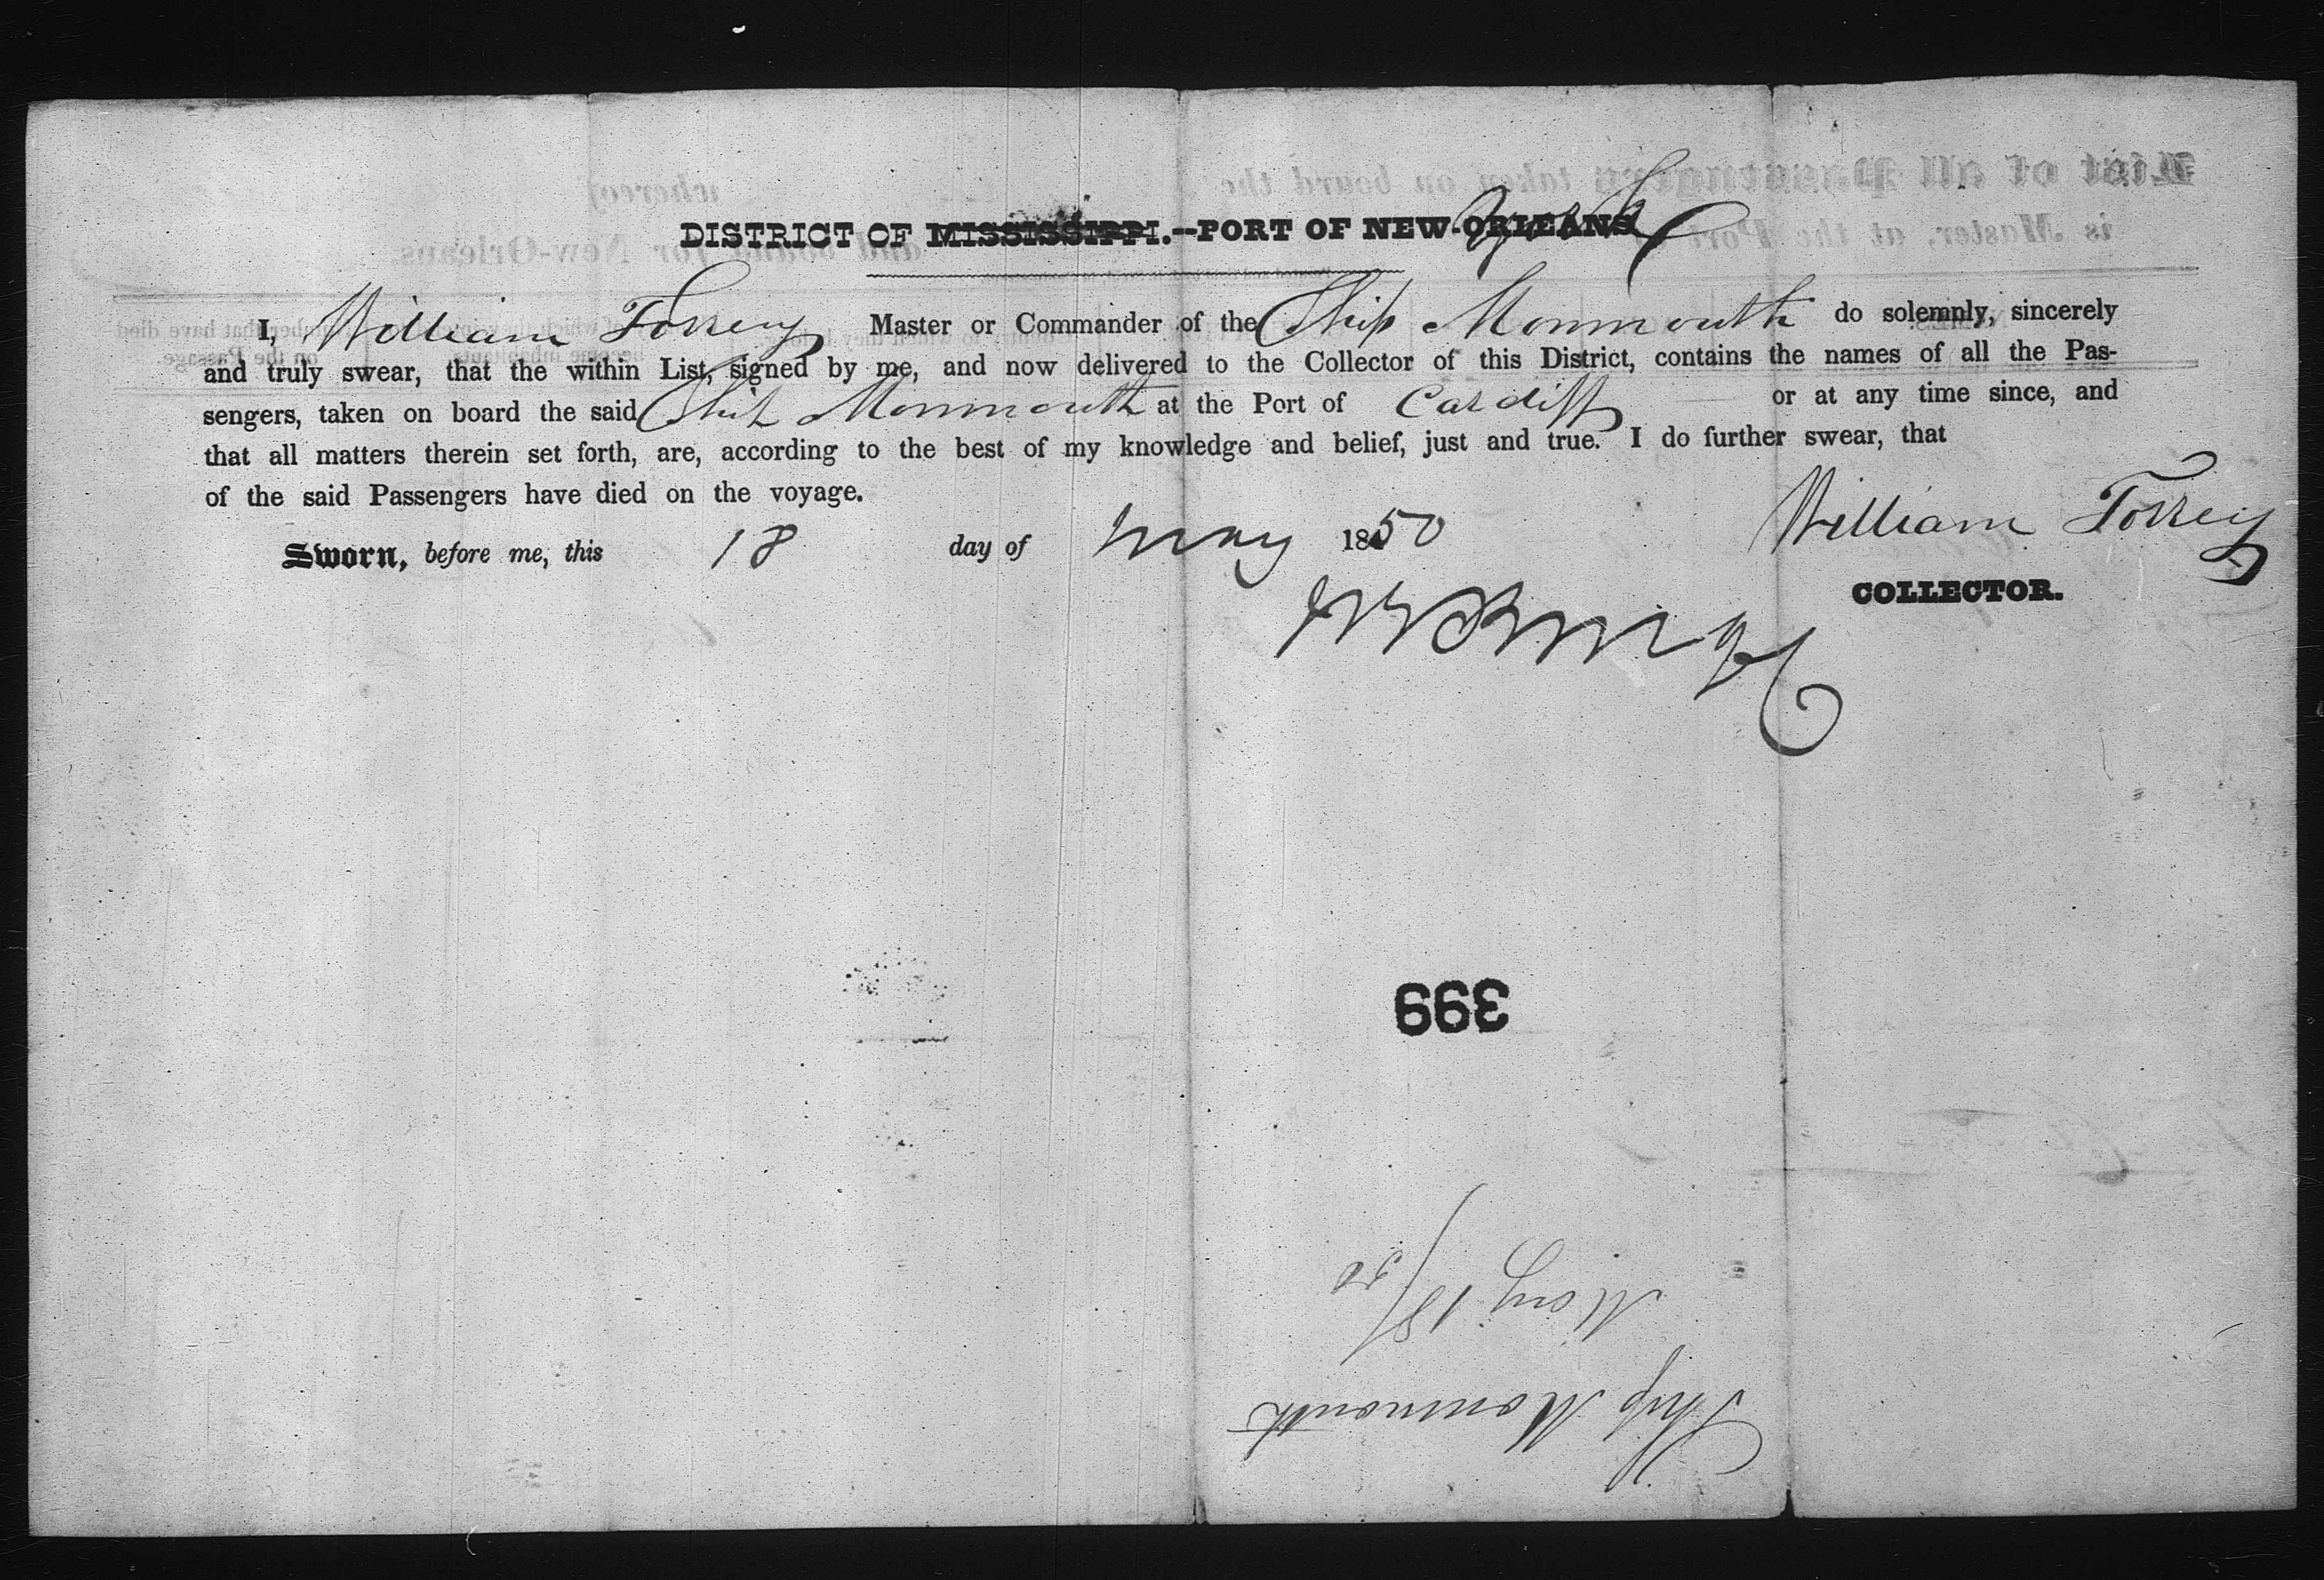 DISTRICT OF MISSISSIPPI.--PORT OF NEW-ORLEANS York
I, William Torrey Master or Commander of the Ship Monmouth do solemnly, sincerely
and truly swear, that the within List, signed by me, and now delivered to the Collector of this District, contains the names of all the Pas-
sengers, taken on board the said Ship Monmouth at the Port of Cardiff or at any time since, and
that all matters therein set forth, are, according to the best of my knowledge and belief, just and true. I do further swear, that
of the said Passengers have died on the voyage.
William Torrey
Sworn, before me, this 18 day of May 1850
COLLECTOR.
399
Ship Monmouth
May 18/50